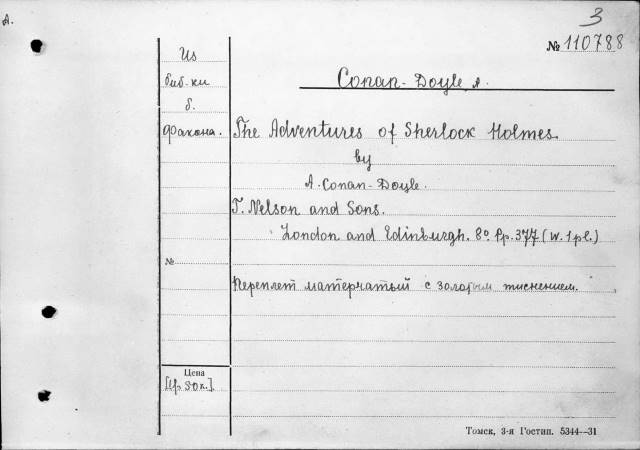 А.
3
№ 110788
Из
биб-ки
б.
Фахона.
Conan-Doyle, A.
The Adventures of Sherlock Holmes
by
A. Conan-Doyle.
T. Nelson and Sons.
London and Edinburgh. 8º Pp. 377 (w. 1 pl.)
№
Переплет матерчатый с золотым тиснением.
Цена
[1р. 30к.]
Томск, 3-я Гостип. 5344—31